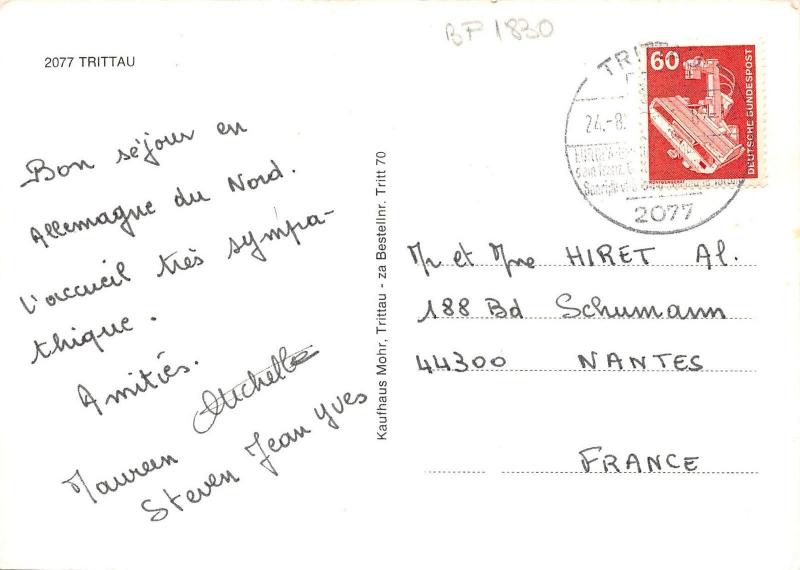 BF 1830
2077 TRITTAU
Bon séjour en
Allemagne du Nord.
L'accueil très sympa-
thique.
Amitiés.
Michelle
Maureen
Steven Jean Yves
Kaufhaus Mohr, Trittau - za Bestellnr. Tritt 70
60
DEUTSCHE BUNDESPOST
TRITT
24.-8.
2077
Mr et Mme HIRET Al.
188 Bd Schumann
44300 NANTES
FRANCE